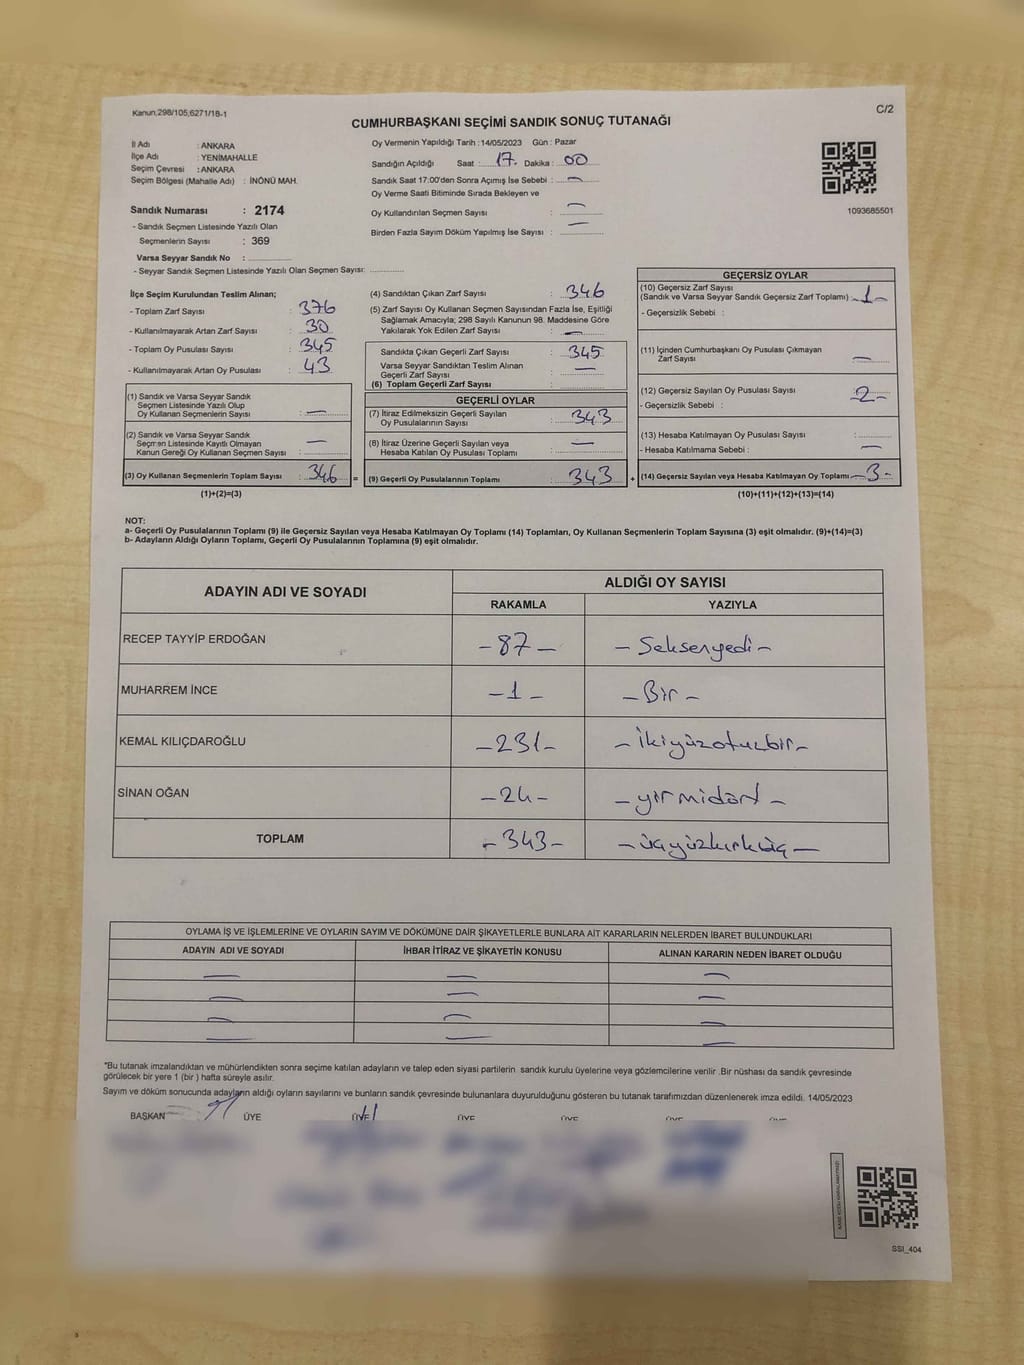 Kanun;298/105,6271/18-1
C/2
CUMHURBAŞKANI SEÇİMİ SANDIK SONUÇ TUTANAĞI
İl Adı : ANKARA
İlçe Adı : YENİMAHALLE
Seçim Çevresi : ANKARA
Seçim Bölgesi (Mahalle Adı) : İNÖNÜ MAH.
Oy Vermenin Yapıldığı Tarih :14/05/2023 Gün : Pazar
Sandığın Açıldığı Saat : 17. Dakika : 00
Sandık Saat 17:00'den Sonra Açımış İse Sebebi : —
Oy Verme Saati Bitiminde Sırada Bekleyen ve
Oy Kullandırılan Seçmen Sayısı : —
Birden Fazla Sayım Döküm Yapılmış İse Sayısı : —
1093685501
Sandık Numarası : 2174
- Sandık Seçmen Listesinde Yazılı Olan
Seçmenlerin Sayısı : 369
Varsa Seyyar Sandık No :
- Seyyar Sandık Seçmen Listesinde Yazılı Olan Seçmen Sayısı:
İlçe Seçim Kurulundan Teslim Alınan;
- Toplam Zarf Sayısı : 376
- Kullanılmayarak Artan Zarf Sayısı : 30
- Toplam Oy Pusulası Sayısı : 345
- Kullanılmayarak Artan Oy Pusulası : 43
(1) Sandık ve Varsa Seyyar Sandık
Seçmen Listesinde Yazılı Olup
Oy Kullanan Seçmenlerin Sayısı : —
(2) Sandık ve Varsa Seyyar Sandık
Seçmen Listesinde Kayıtlı Olmayan
Kanun Gereği Oy Kullanan Seçmen Sayısı : —
(3) Oy Kullanan Seçmenlerin Toplam Sayısı : 346 =
(1)+(2)=(3)
(4) Sandıktan Çıkan Zarf Sayısı : 346
(5) Zarf Sayısı Oy Kullanan Seçmen Sayısından Fazla İse, Eşitliği
Sağlamak Amacıyla; 298 Sayılı Kanunun 98. Maddesine Göre
Yakılarak Yok Edilen Zarf Sayısı : —
Sandıkta Çıkan Geçerli Zarf Sayısı : 345
Varsa Seyyar Sandıktan Teslim Alınan
Geçerli Zarf Sayısı : —
(6) Toplam Geçerli Zarf Sayısı :
GEÇERLİ OYLAR
(7) İtiraz Edilmeksizin Geçerli Sayılan
Oy Pusulalarının Sayısı : 343
(8) İtiraz Üzerine Geçerli Sayılan veya
Hesaba Katılan Oy Pusulası Toplamı : —
(9) Geçerli Oy Pusulalarının Toplamı : 343 +
GEÇERSİZ OYLAR
(10) Geçersiz Zarf Sayısı
(Sandık ve Varsa Seyyar Sandık Geçersiz Zarf Toplamı) -1-
- Geçersizlik Sebebi :
(11) İçinden Cumhurbaşkanı Oy Pusulası Çıkmayan
Zarf Sayısı : —
(12) Geçersiz Sayılan Oy Pusulası Sayısı : -2-
- Geçersizlik Sebebi :
(13) Hesaba Katılmayan Oy Pusulası Sayısı :
- Hesaba Katılmama Sebebi : —
(14) Geçersiz Sayılan veya Hesaba Katılmayan Oy Toplamı -3-
(10)+(11)+(12)+(13)=(14)
NOT:
a- Geçerli Oy Pusulalarının Toplamı (9) ile Geçersiz Sayılan veya Hesaba Katılmayan Oy Toplamı (14) Toplamları, Oy Kullanan Seçmenlerin Toplam Sayısına (3) eşit olmalıdır. (9)+(14)=(3)
b- Adayların Aldığı Oyların Toplamı, Geçerli Oy Pusulalarının Toplamına (9) eşit olmalıdır.
ADAYIN ADI VE SOYADI ALDIĞI OY SAYISI
RAKAMLA YAZIYLA
RECEP TAYYİP ERDOĞAN -87- -Seksenyedi-
MUHARREM İNCE -1- -Bir-
KEMAL KILIÇDAROĞLU -231- -ikiyüzotuzbir-
SİNAN OĞAN -24- -yirmidört-
TOPLAM -343- -üçyüzkırküç-
OYLAMA İŞ VE İŞLEMLERİNE VE OYLARIN SAYIM VE DÖKÜMÜNE DAİR ŞİKAYETLERLE BUNLARA AİT KARARLARIN NELERDEN İBARET BULUNDUKLARI
ADAYIN ADI VE SOYADI İHBAR İTİRAZ VE ŞİKAYETİN KONUSU ALINAN KARARIN NEDEN İBARET OLDUĞU
*Bu tutanak imzalandıktan ve mühürlendikten sonra seçime katılan adayların ve talep eden siyasi partilerin sandık kurulu üyelerine veya gözlemcilerine verilir .Bir nüshası da sandık çevresinde
görülecek bir yere 1 (bir ) hafta süreyle asılır.
Sayım ve döküm sonucunda adayların aldığı oyların sayılarını ve bunların sandık çevresinde bulunanlara duyurulduğunu gösteren bu tutanak tarafımızdan düzenlenerek imza edildi. 14/05/2023
BAŞKAN ÜYE ÜYE ÜYE ÜYE ÜYE ÜYE
SSI_404